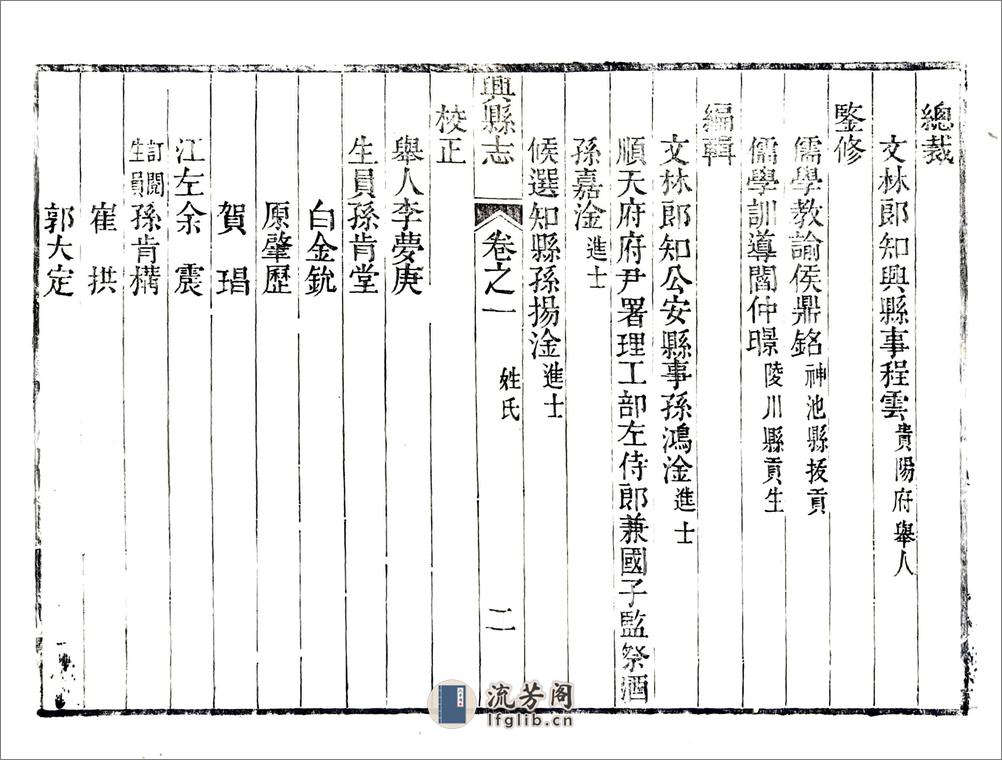 總裁
文林郎知興縣事程雲貴陽府舉人
鍳修
儒學教諭侯鼎銘神池縣拔貢
儒學訓導閻仲暻陵川縣貢生
編輯
文林郎知公安縣事孫鴻淦進士
順天府府尹署理工部左侍郎兼國子監祭酒
孫嘉淦進士
候選知縣孫揚淦進士
興縣志 卷之一 姓氏 二
校正
舉人李夢庚
生員孫肯堂
白金鈗
原肇歷
賀瑁
江左余震
訂閱生員孫肯構
崔拱
郭大定
流芳阁
lfglib.cn